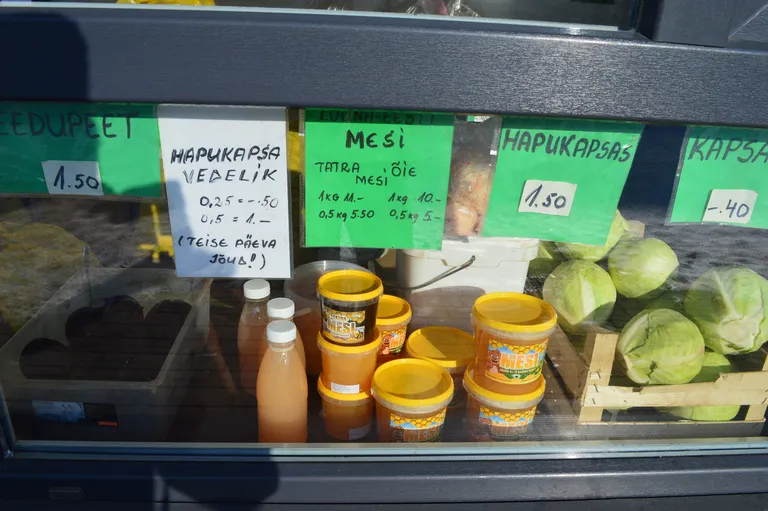 EEDUPEET
1.50
HAPUKAPSA
VEDELIK
0,25 = -.50
0,5 = 1.-
(TEISE PÄEVA
JÕUB!)
MESI
TATRA
MESI
1KG 11.-
0,5kg 5.50
ÕIE
1kg -10.-
0,5kg 5.-
HAPUKAPSAS
1.50
KAPSA
-.40
MESI
MESI
MESI